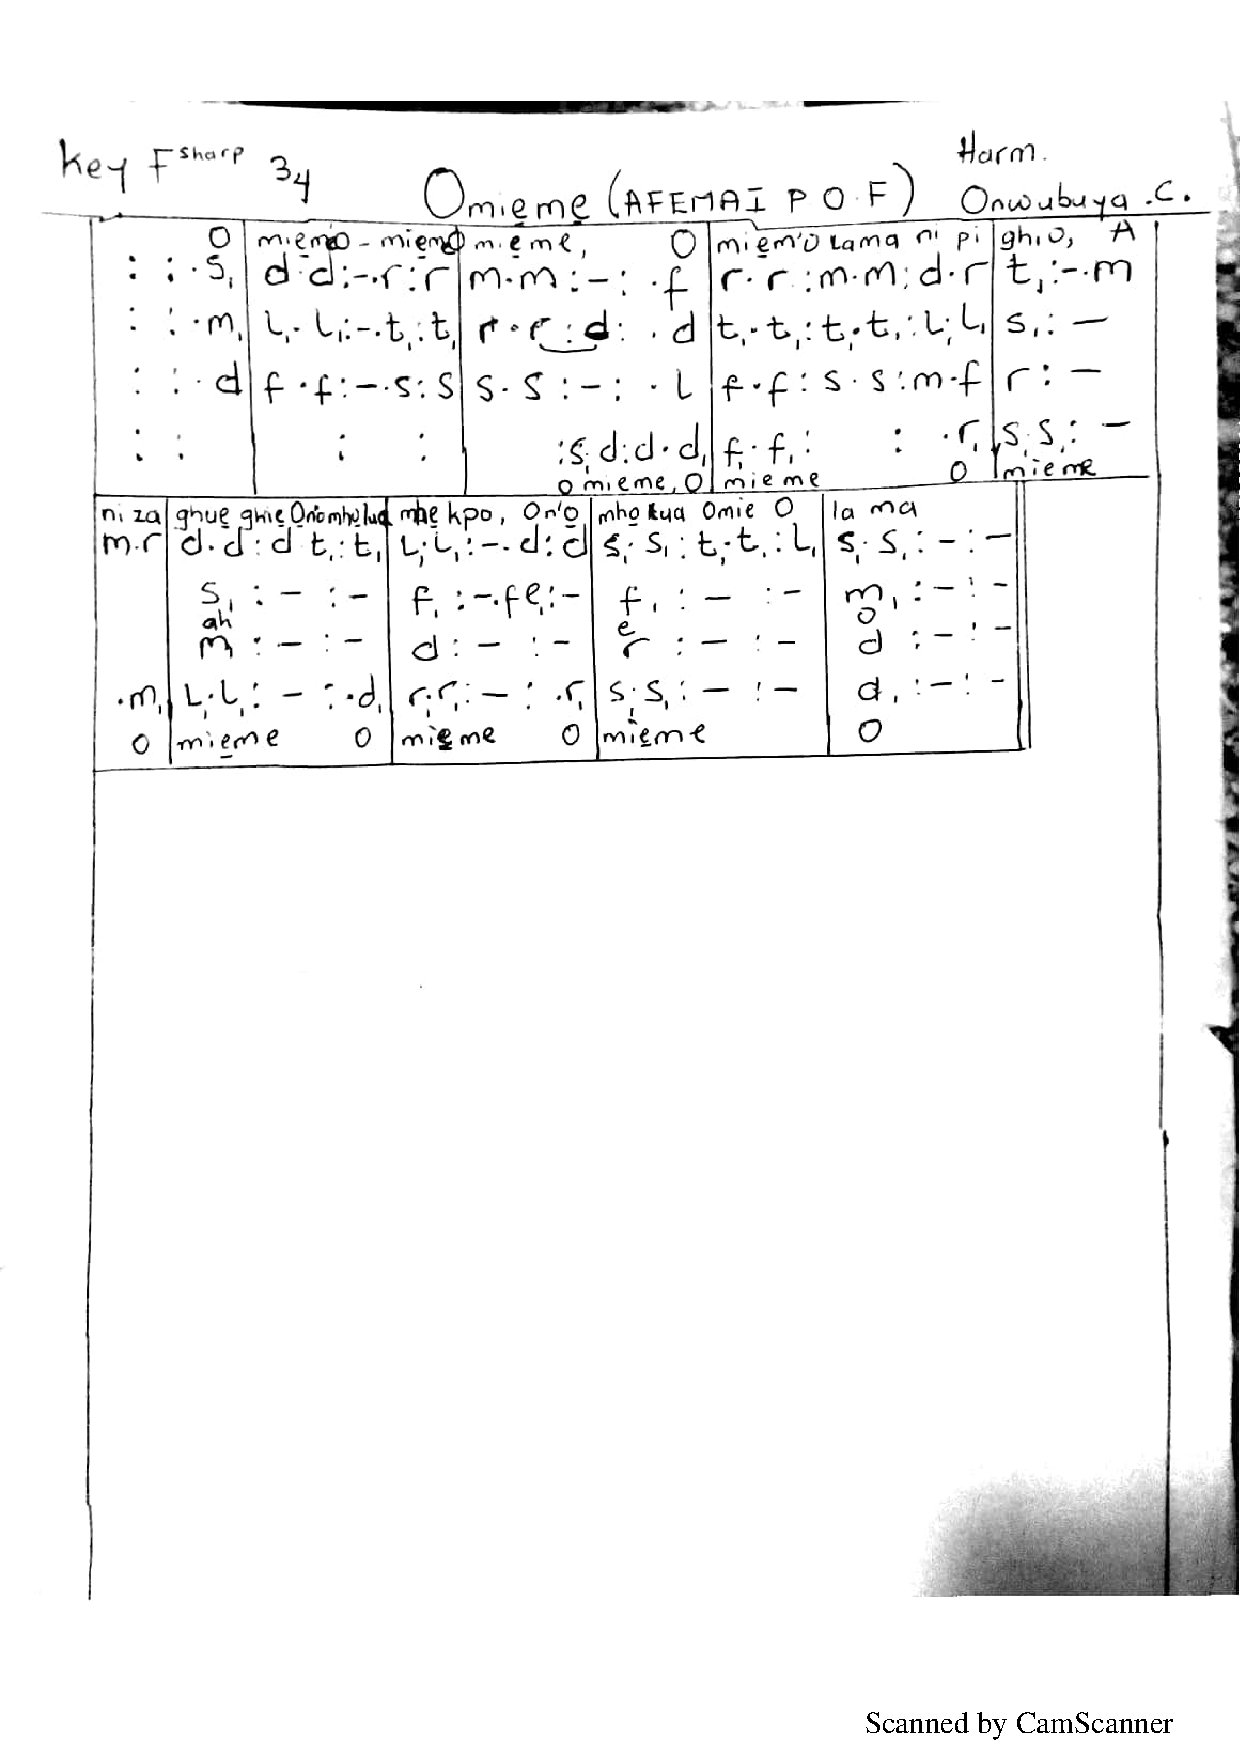 Key F sharp 3/4 Omieme (AFEMAI P O F) Harm. Onwubuya .C.
O miemo - miemO mieme, O miem'o Lama ni pi ghio, A
: : .s, | d.d:-.r:r | m.m:-: .f | r.r:m.m:d.r | t,:-.m
: : .m, | l,.l,:-.t,:t, | r.r:d: .d | t,.t,:t,.t,:l,.l, | s,:-
: : .d | f.f:-.s:s | s.s:-: .l | f.f:s.s:m.f | r:-
: : | : : | :s,d:d.d, | f,.f,: : .r, | s,.s,:-
O mieme, O mieme O mieme
ni za ghue ghie Onomhulua mhe kpo, On'o mho kua Omie O la ma
m.r | d.d:d t,:t, | l,.l,:-.d:d | s,.s,:t,.t,:l, | s,.s,:-:-
s,:-:- | f,:-.fe,:- | f,:-:- | m,:-:-
ah e o
m:-:- | d:-:- | r:-:- | d:-:-
.m, | l,.l,:-:.d, | r,.r,:-:.r, | s,.s,:-:- | d,:-:-
O mieme O mieme O mieme O
Scanned by CamScanner